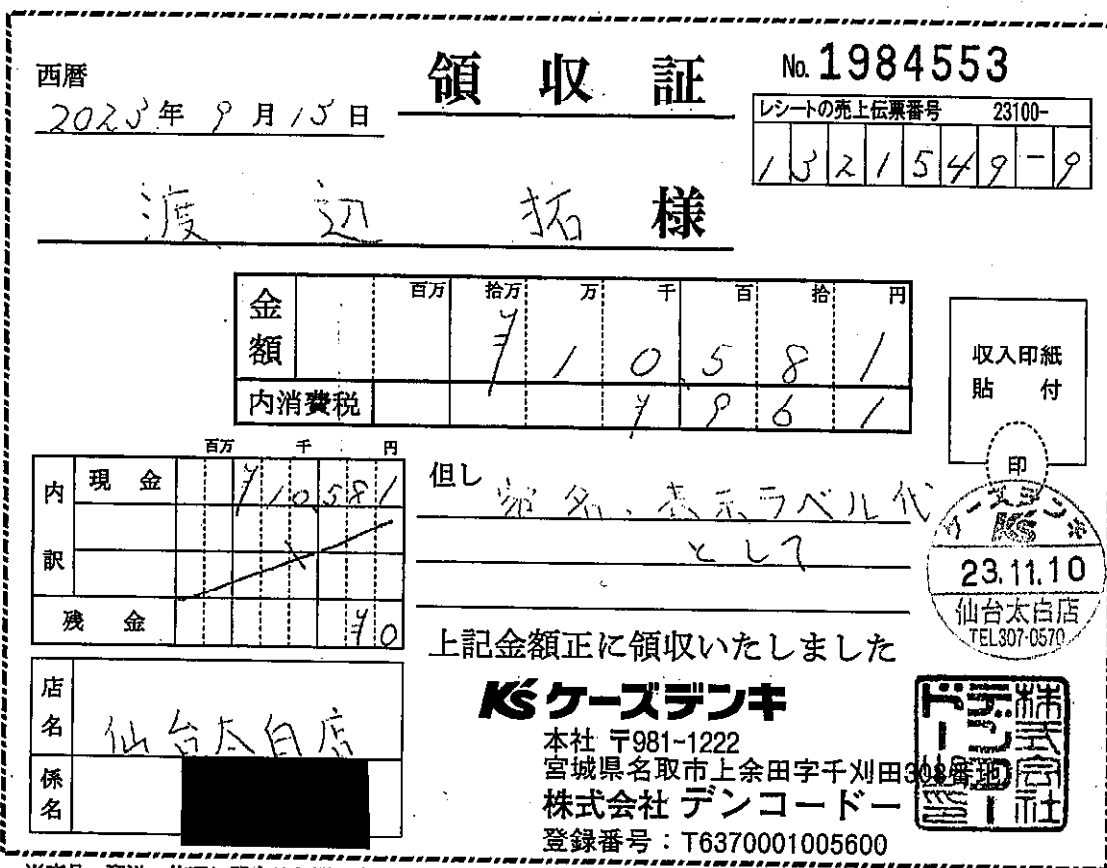 西暦
2023年 9月15日
領収証
No. 1984553
レシートの売上伝票番号 23100-
1321549-9
渡辺 拓 様
百万 拾万 万 千 百 拾 円
金額 ¥10581
内消費税 ¥961
収入印紙
貼 付
印
百万 千 円
内訳
現金 ¥10,581
残金 ¥0
但し 宛名、表示ラベル代
として
上記金額正に領収いたしました
ケーズデンキ
K's
23.11.10
仙台太白店
TEL307-0570
店名 仙台太白店
係名
K's ケーズデンキ
本社 〒981-1222
宮城県名取市上余田字千刈田308番地
株式会社 デンコードー
登録番号：T6370001005600
株式会社デンコードー